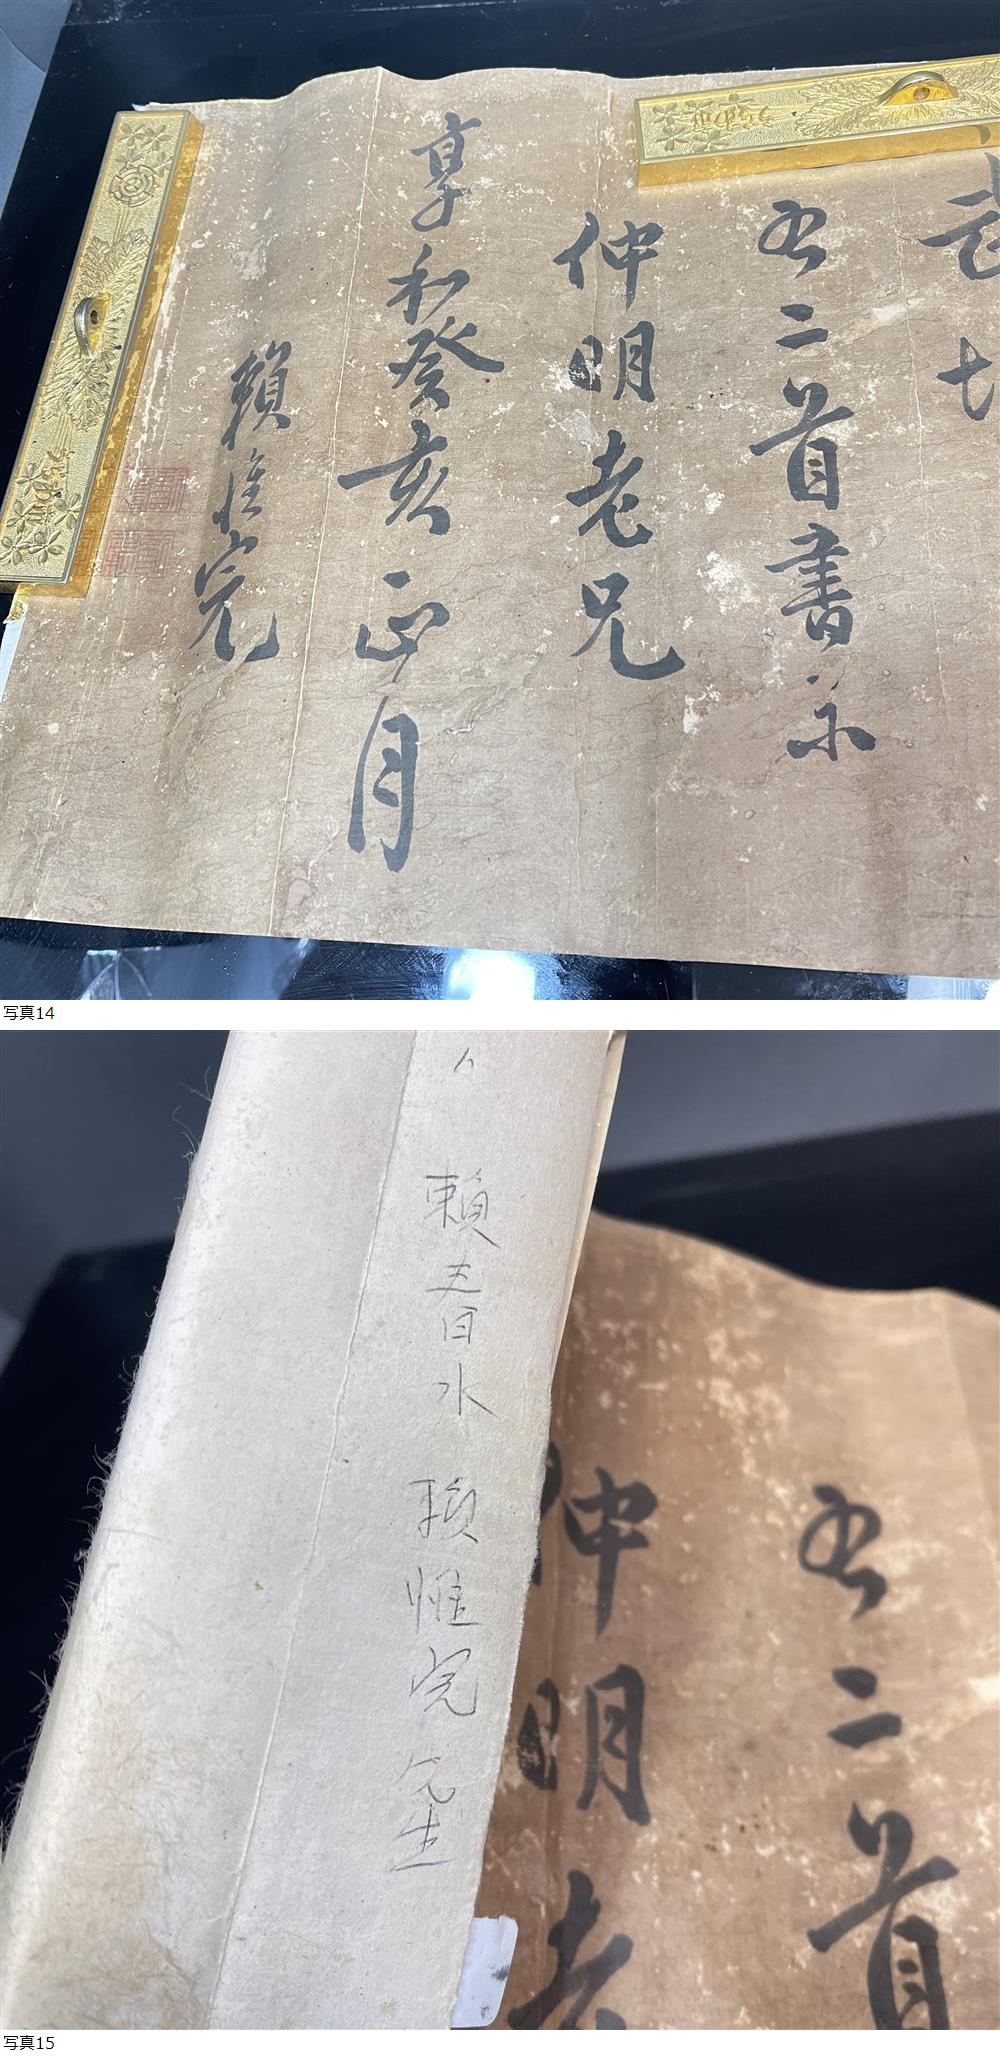 右二首書示
仲明老兄
享和癸亥正月
賴惟完
写真14
賴春水 賴惟完 先生
右二首
仲明老
写真15